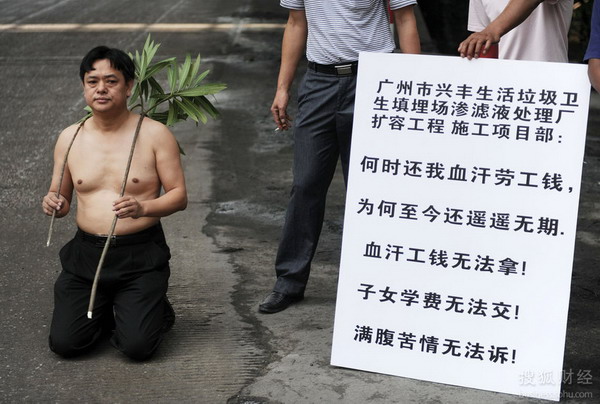 广州市兴丰生活垃圾卫
生填埋场渗滤液处理厂
扩容工程 施工项目部:
何时还我血汗劳工钱,
为何至今还遥遥无期.
血汗工钱无法拿!
子女学费无法交!
满腹苦情无法诉!
搜狐财经